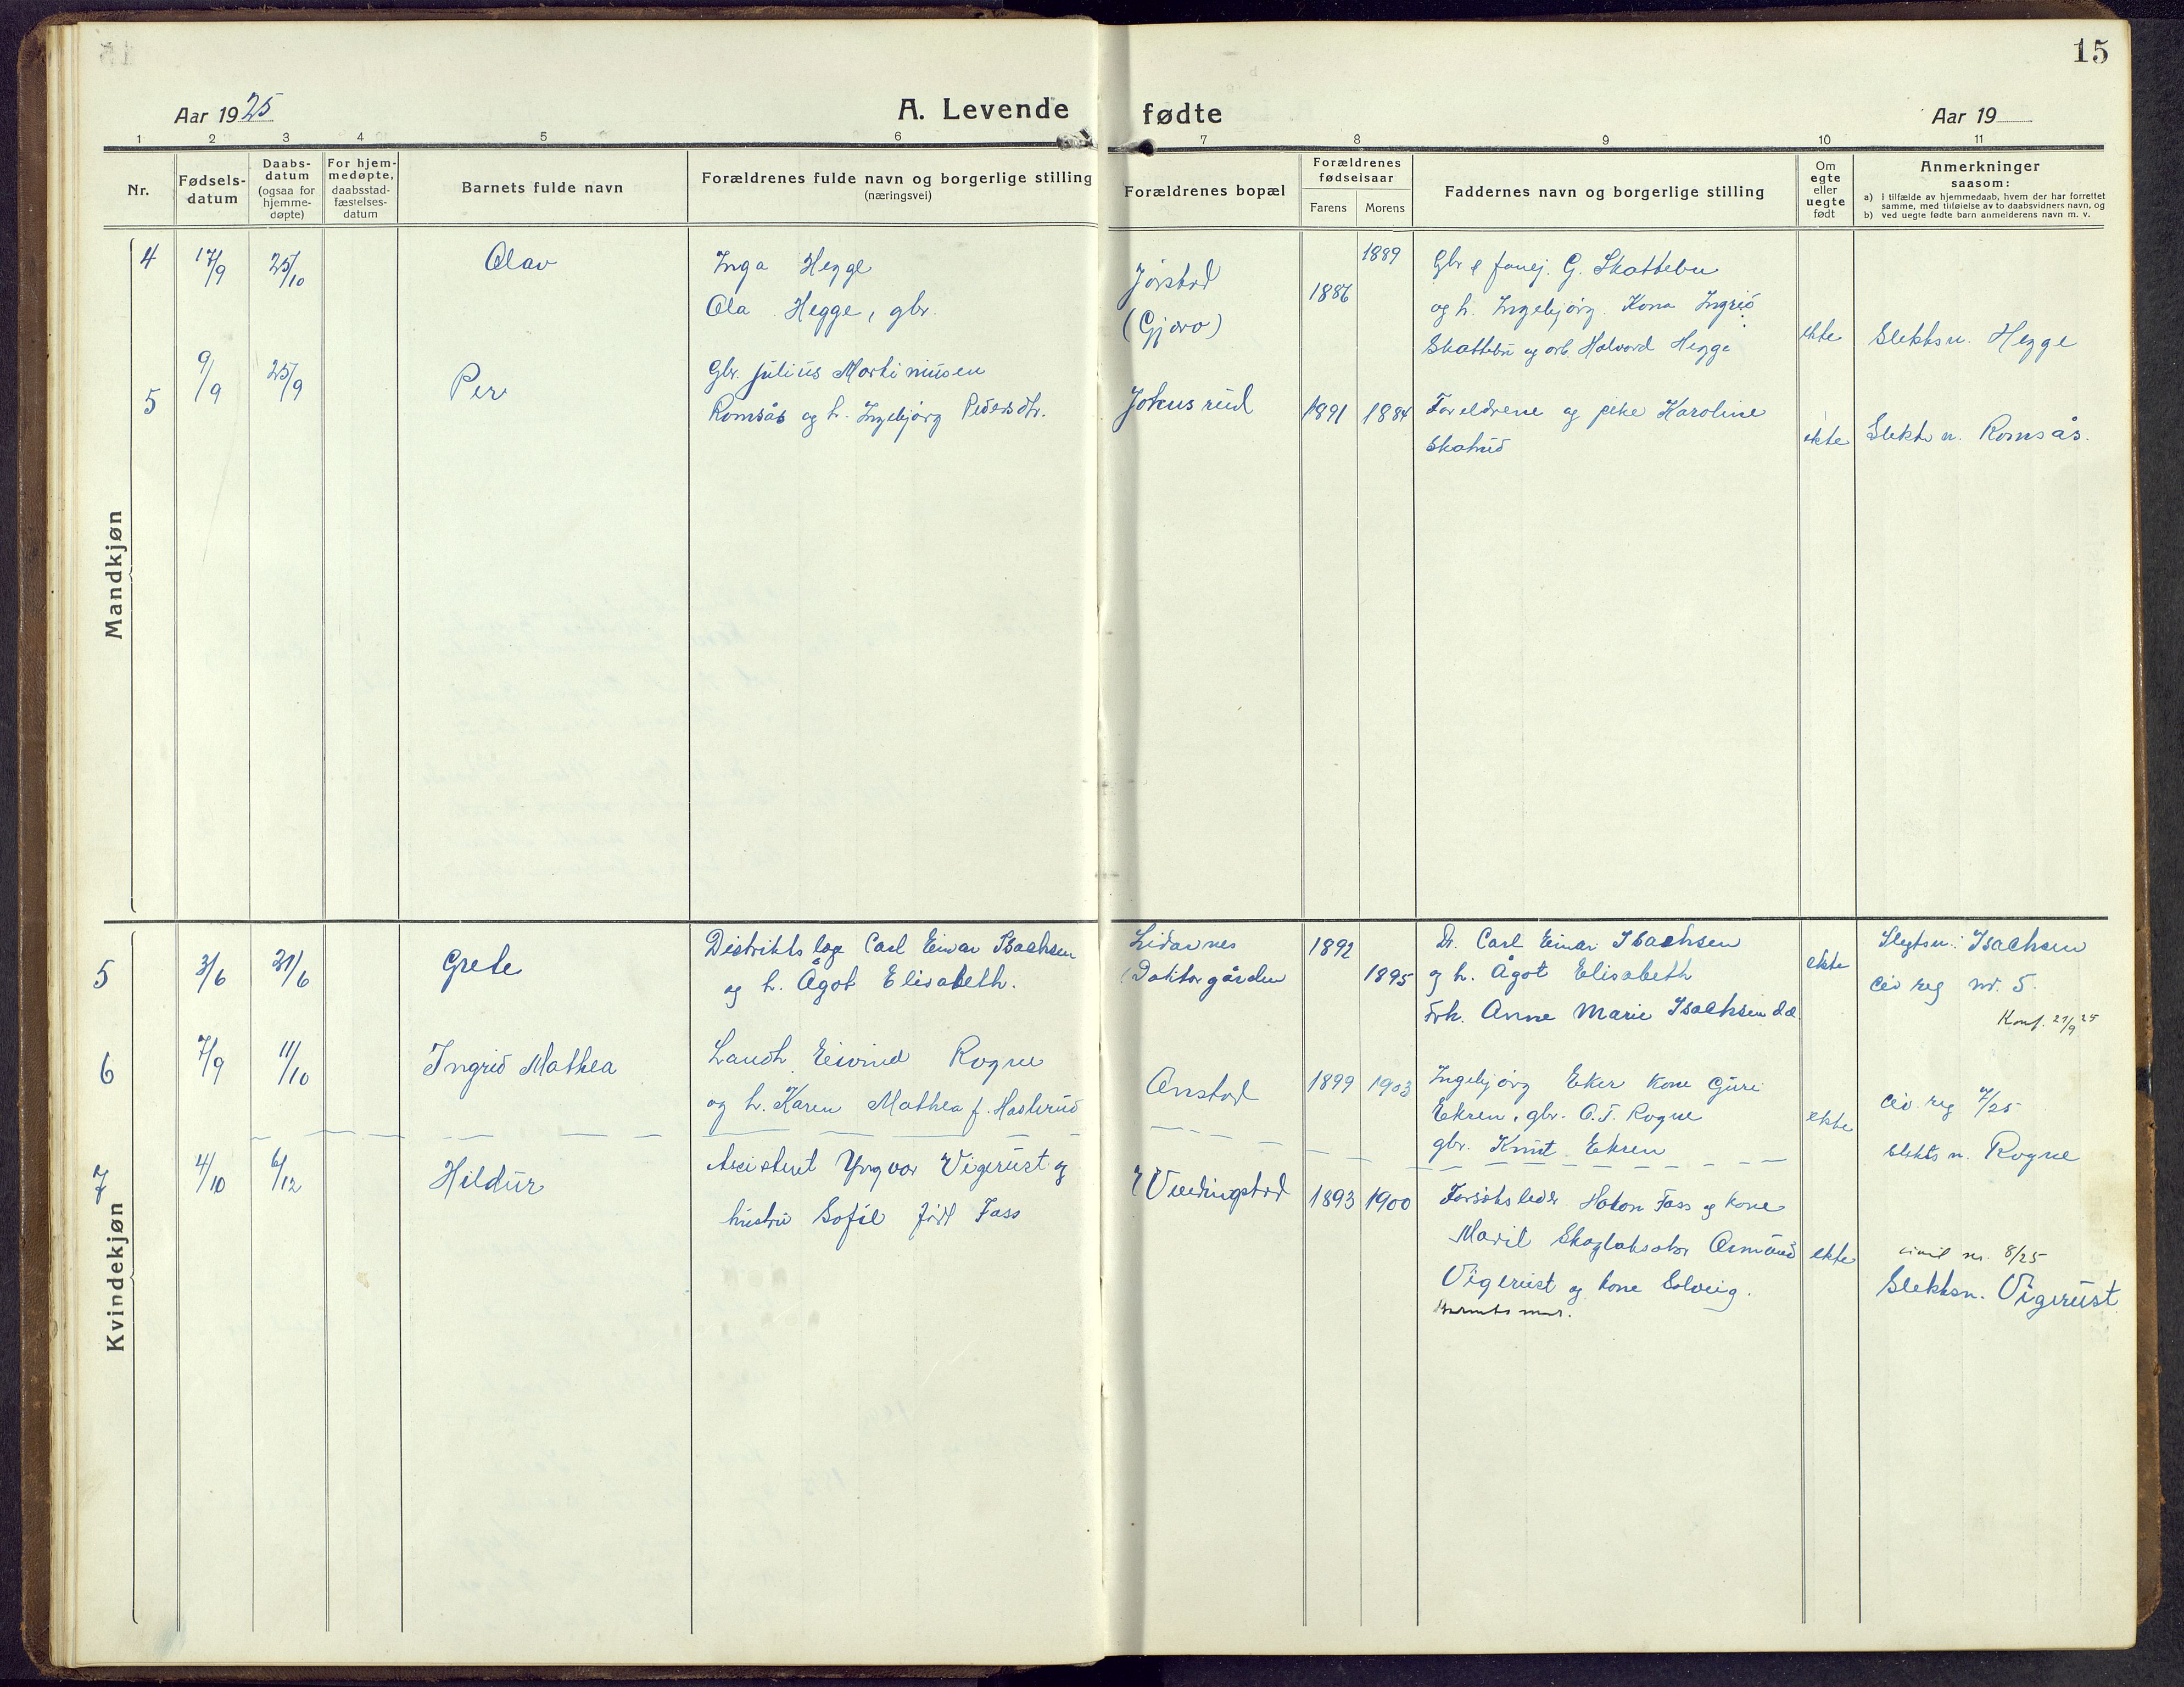 15
Aar 1925
A. Levende fødte
Aar 19
1 2 3 4 5 6 7 8 9 10 11
Nr.
Fødsels-
datum
Daabs-
datum
(ogsaa for
hjemme-
døpte)
For hjem-
medøpte,
daabsstad-
fæstelses-
datum
Barnets fulde navn
Forældrenes fulde navn og borgerlige stilling
(næringsvei)
Forældrenes bopæl
Forældrenes
fødselsaar
Farens Morens
Faddernes navn og borgerlige stilling
Om
egte
eller
uegte
født
Anmerkninger
saasom:
a) i tilfælde av hjemmedaab, hvem der har forrettet
samme, med tilføielse av to daabsvidners navn, og
b) ved uegte fødte barn anmelderens navn m. v.
Mandkjøn
4 17/9 25/10 Olav
Inga Hegge
Ola Hegge, gbr.
Jørstad
(Gjøvo)
1886 1889
Gbr & G. Skattebu
og h. Ingebjørg. Kona Ingrid
Skattebu og arb. Halvard Hegge
ekte
Slektsn. Hegge
5 9/9 25/9 Per
Gbr. Julius Martinusen
Romsås og h. Ingebjørg Pedersdtr.
Jokusrud
1891 1884
Foreldrene og pike Karoline
Skatrud
ekte
Slektsn. Romsås.
Kvindekjøn
5 3/6 21/6 Grete
Distriktslæge Carl Einar Isachsen
og h. Ågot Elisabeth.
Lidarnes
(Doktorgården
1892 1895
Dr. Carl Einar Isachsen
og h. Ågot Elisabeth
Frk. Anne Marie Isachsen d.æ.
ekte
Slegtsn: Isachsen
civ reg nr. 5.
Konf. 21/9 25
6 7/9 11/10 Ingrid Mathea
Landh. Eivind Rogne
og h. Karen Mathea f. Haslerud
Onstad
1899 1903
Ingebjørg Eker kone Guri
Ekren, gbr. O.T. Rogne
gbr. Knut Ekren
ekte
civ. reg 7/25
slekts n. Rogne
7 4/10 6/12 Hildur
Assistent Yngvar Vigerust og
hustru Sofie født Foss
1893 1900
Forsøksleder Håkon Foss og kone
Marit Skogtaksator Asmund
Vigerust og kone Solveig.
ekte
civil nr. 8/25
Slektsn. Vigerust